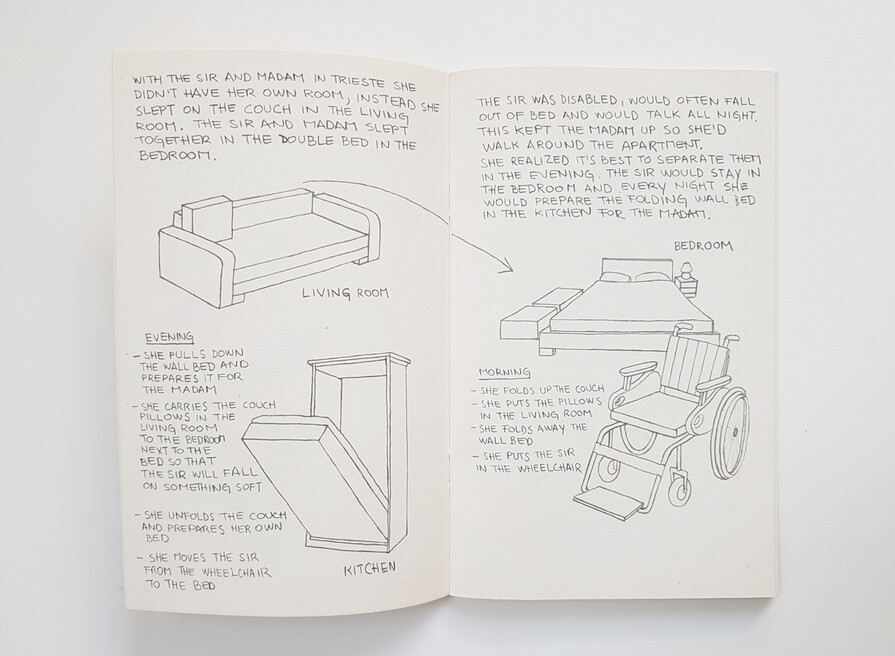 WITH THE SIR AND MADAM IN TRIESTE SHE
DIDN'T HAVE HER OWN ROOM, INSTEAD SHE
SLEPT ON THE COUCH IN THE LIVING
ROOM. THE SIR AND MADAM SLEPT
TOGETHER IN THE DOUBLE BED IN THE
BEDROOM.
LIVING ROOM
EVENING
- SHE PULLS DOWN
THE WALL BED AND
PREPARES IT FOR
THE MADAM
- SHE CARRIES THE COUCH
PILLOWS IN THE
LIVING ROOM
TO THE BEDROOM
NEXT TO THE
BED SO THAT
THE SIR WILL FALL
ON SOMETHING SOFT
- SHE UNFOLDS THE COUCH
AND PREPARES HER OWN
BED
- SHE MOVES THE SIR
FROM THE WHEELCHAIR
TO THE BED
KITCHEN
THE SIR WAS DISABLED, WOULD OFTEN FALL
OUT OF BED AND WOULD TALK ALL NIGHT.
THIS KEPT THE MADAM UP SO SHE'D
WALK AROUND THE APARTMENT.
SHE REALIZED IT'S BEST TO SEPARATE THEM
IN THE EVENING. THE SIR WOULD STAY IN
THE BEDROOM AND EVERY NIGHT SHE
WOULD PREPARE THE FOLDING WALL BED
IN THE KITCHEN FOR THE MADAM.
BEDROOM
MORNING
- SHE FOLDS UP THE COUCH
- SHE PUTS THE PILLOWS
IN THE LIVING ROOM
- SHE FOLDS AWAY THE
WALL BED
- SHE PUTS THE SIR
IN THE WHEELCHAIR